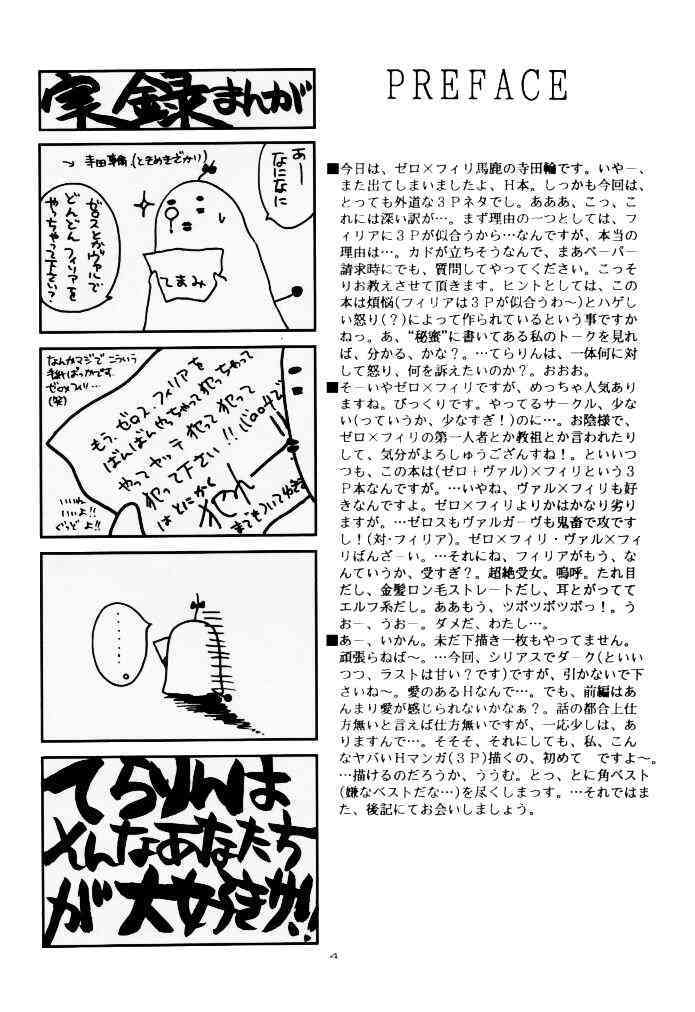 実録まんが
あー
なになに
→寺田輪、(ときめきでかり)
ゼロスとかヴァルで
どんどんフィリアを
やっちゃって下さい?
てまみ
なんかマジでこういう
手紙ばっかです。
ゼロ×フィリ…
(笑)
もう、ゼロス、フィリアを
ばんばんやっちゃって犯っちゃって
やってヤッテ犯って犯って
犯って下さい!!
はとにかく
犯れ
までもついて
いいね
いいよ!!
ぐっどよ!!
……。
てらりんは
そんなあなたち
が大好きサ!!
PREFACE
■今日は、ゼロ×フィリ馬鹿の寺田輪です。いやー、
また出てしまいましたよ、H本。しっかも今回は、
とっても外道な3Pネタでし。あああ、こっ、こ
れには深い訳が…。まず理由の一つとしては、フ
ィリアに3Pが似合うから…なんですが、本当の
理由は…。カドが立ちそうなんで、まあペーパー
請求時にでも、質問してやってください。こっそ
りお教えさせて頂きます。ヒントとしては、この
本は煩悩(フィリアは3Pが似合うわ~)とハゲし
い怒り(?)によって作られているという事ですか
ねっ。あ、“秘蜜”に書いてある私のトークを見れ
ば、分かる、かな?。…てらりんは、一体何に対
して怒り、何を訴えたいのか?。おおお。
■そーいやゼロ×フィリですが、めっちゃ人気あり
ますね。びっくりです。やってるサークル、少な
い(っていうか、少なすぎ!)のに…。お陰様で、
ゼロ×フィリの第一人者とか教祖とか言われたり
して、気分がよろしゅうござんすね!。といいつ
つも、この本は(ゼロ+ヴァル)×フィリという3
P本なんですが。…いやね、ヴァル×フィリも好
きなんですよ。ゼロ×フィリよりかはかなり劣り
ますが。…ゼロスもヴァルガーヴも鬼畜で攻です
し!(対・フィリア)。ゼロ×フィリ・ヴァル×フィ
リばんざーい。…それにね、フィリアがもう、な
んていうか、受すぎ?。超絶受女。嗚呼。たれ目
だし、金髪ロン毛ストレートだし、耳とがってて
エルフ系だし。ああもう、ツボツボツボっ!。う
おー、うおー。ダメだ、わたし…。
■あー、いかん。未だ下描き一枚もやってません。
頑張らねば~。…今回、シリアスでダーク(といい
つつ、ラストは甘い?です)ですが、引かないで下
さいね~。愛のあるHなんで…。でも、前編はあ
んまり愛が感じられないかなぁ?。話の都合上仕
方無いと言えば仕方無いですが、一応少しは、あ
りますんで…。そそそ、それにしても、私、こん
なヤバいHマンガ(3P)描くの、初めて ですよ~。
…描けるのだろうか、ううむ。とっ、とに角ベスト
(嫌なベストだな…)を尽くしまっす。…それではま
た、後記にてお会いしましょう。
4